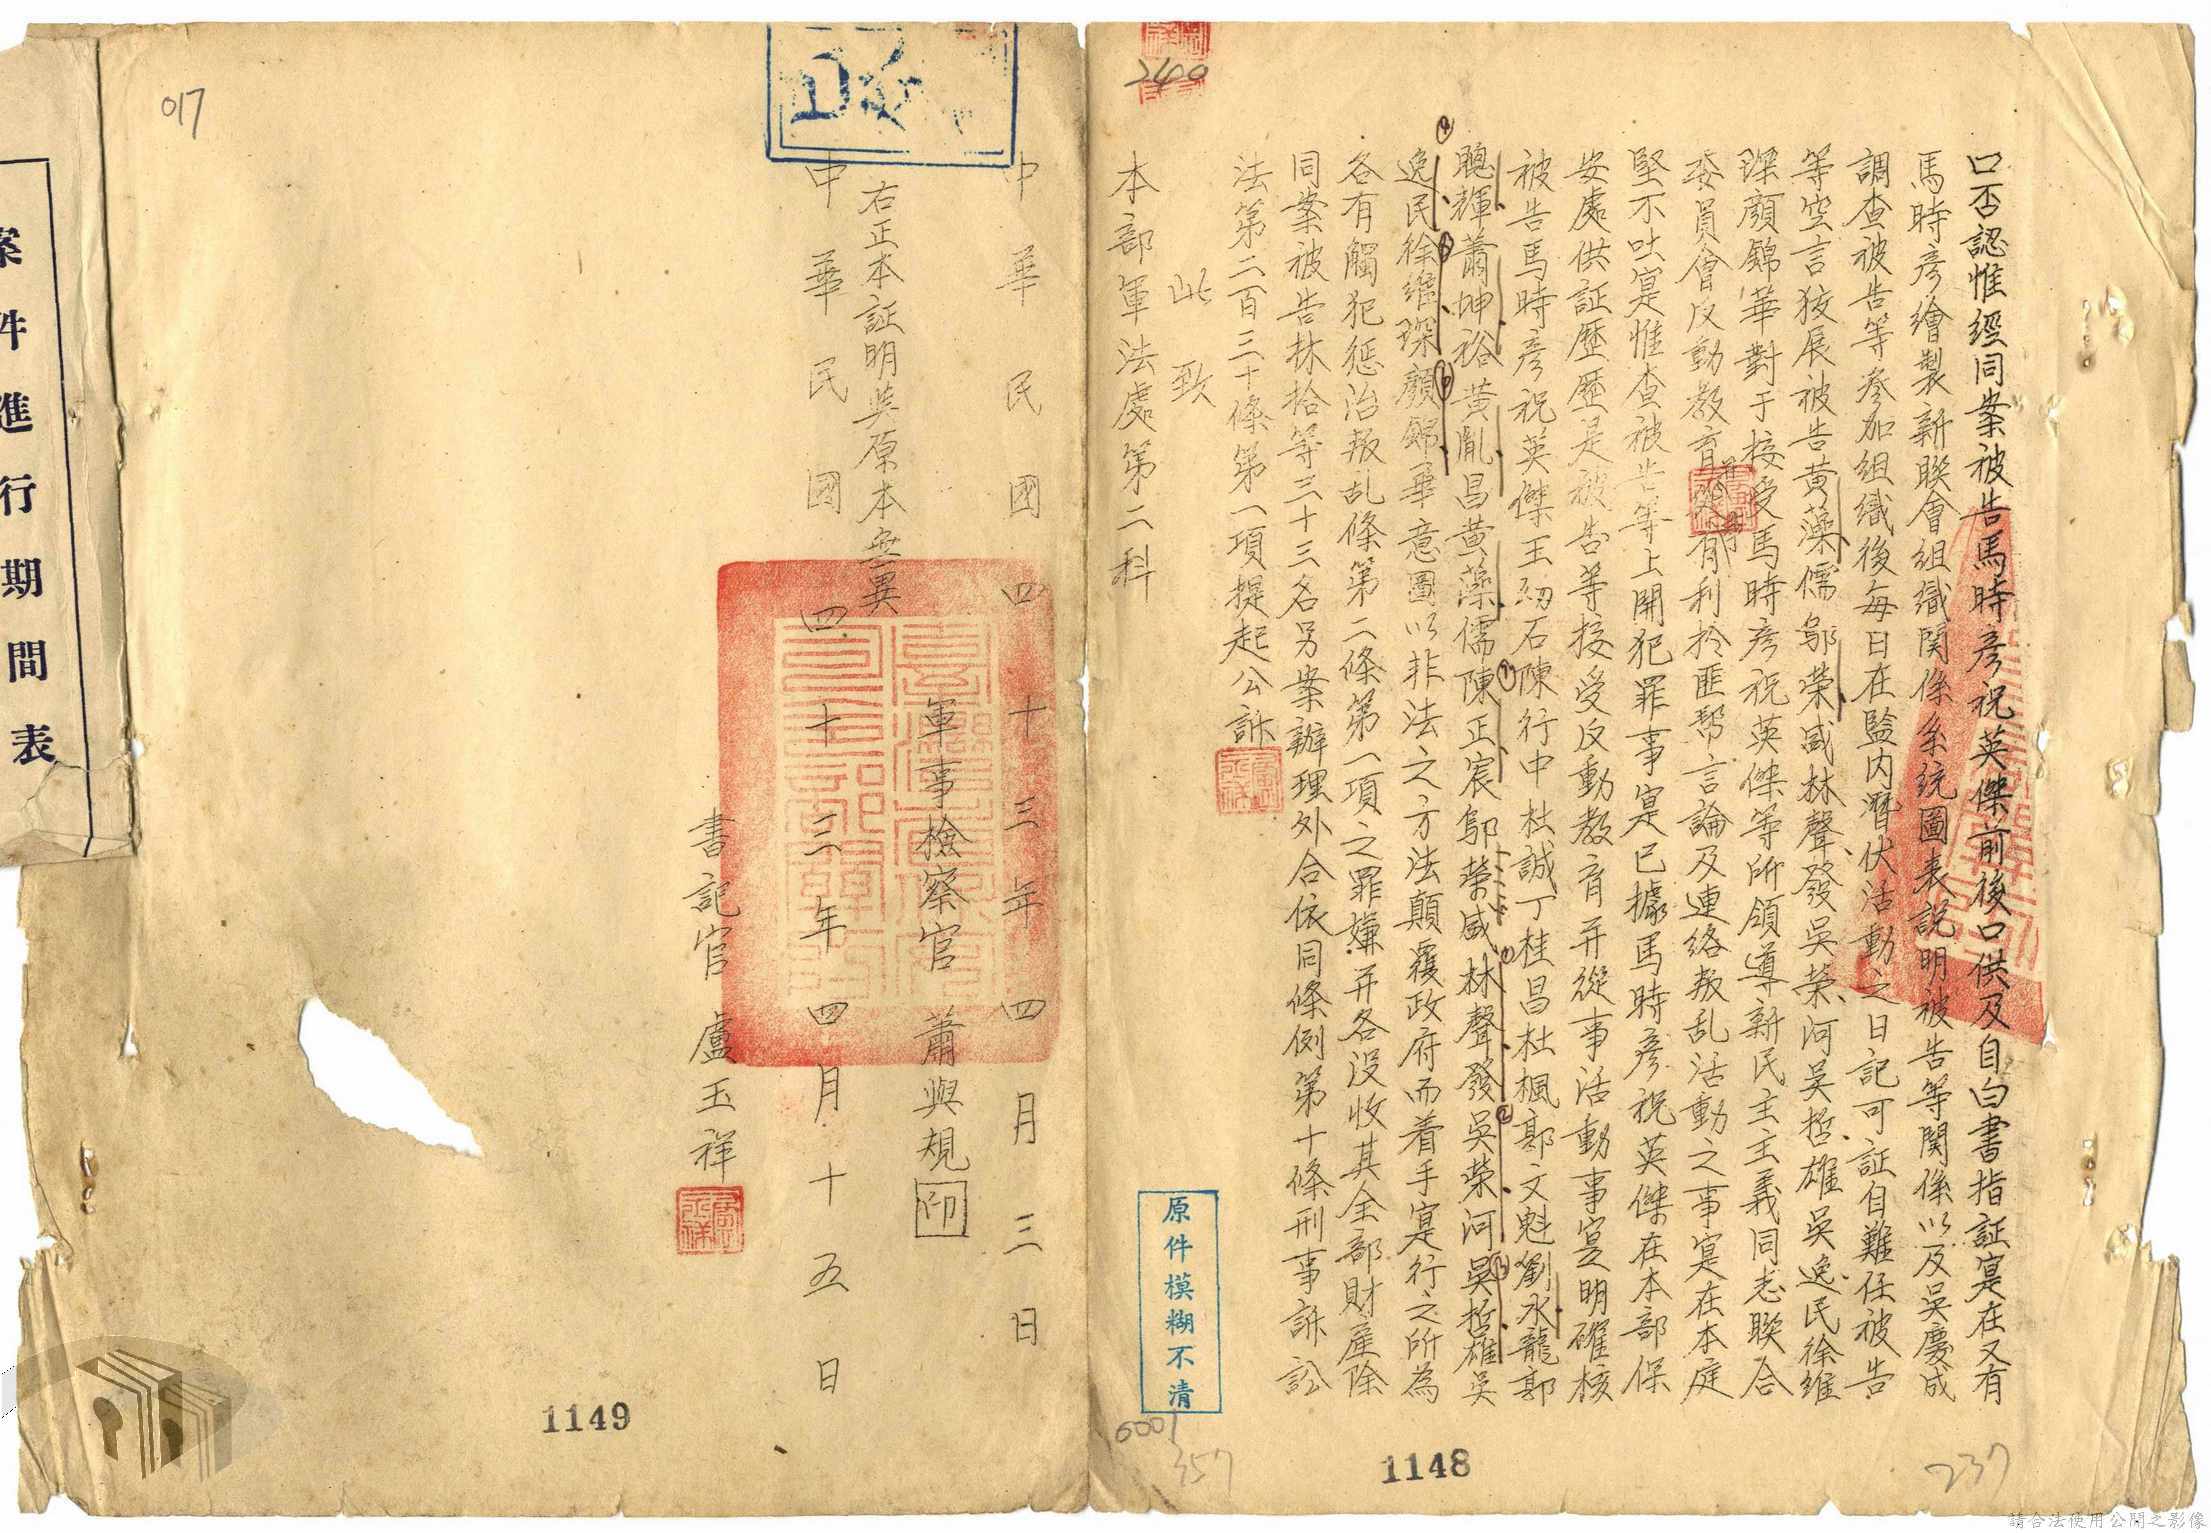 口否認惟經同案被告馬時彥祝英傑前後口供及自白書指証寔在又有
馬時彥繪製新聯會組織関係系統圖表説明被告等関係以及吳慶成
調查被告等參加組織後每日在監內潛伏活動之日記可証自難任被告
等空言狡展被告黃藻儒鄔榮盛林聲發吳榮河吳哲雄吳逸民徐維
琛顏錦華對于接受馬時彥祝英傑等所領導新民主主義同志聯合
委員會反動教育 有利於匪幫言論及連絡叛乱活動之事寔在本庭
堅不吐寔惟查被告等上開犯罪事寔已據馬時彥祝英傑在本部保
安處供証歷歷是被告等接受反動教育并從事活動事寔明確核
被告馬時彥祝英傑王紉石陳行中杜誠丁桂昌杜楓郭文魁劉水龍郭
聰輝蕭坤裕黃胤昌黃藻儒陳正宸鄔榮盛林聲發吳榮河吳哲雄吳
逸民徐維琛顏錦華意圖以非法之方法顛覆政府而着手寔行之所為
各有觸犯惩治叛乱條第二條第一項之罪嫌并各没收其全部財産除
同案被告林拾等三十三名另案辦理外合依同條例第十條刑事訴訟
法第二百三十條第一項提起公訴
此致
本部軍法處第二科
中華民國四十三年四月三日
軍事檢察官 蕭與規 印
右正本証明與原本無異
中華民國四十三年四月十五日
書記官 盧玉祥
案件進行期間表
原件模糊不清
017
240
1149
1148
6001
357
237
④
⑤
⑥
⑦
①
②
③
請合法使用公開之影像